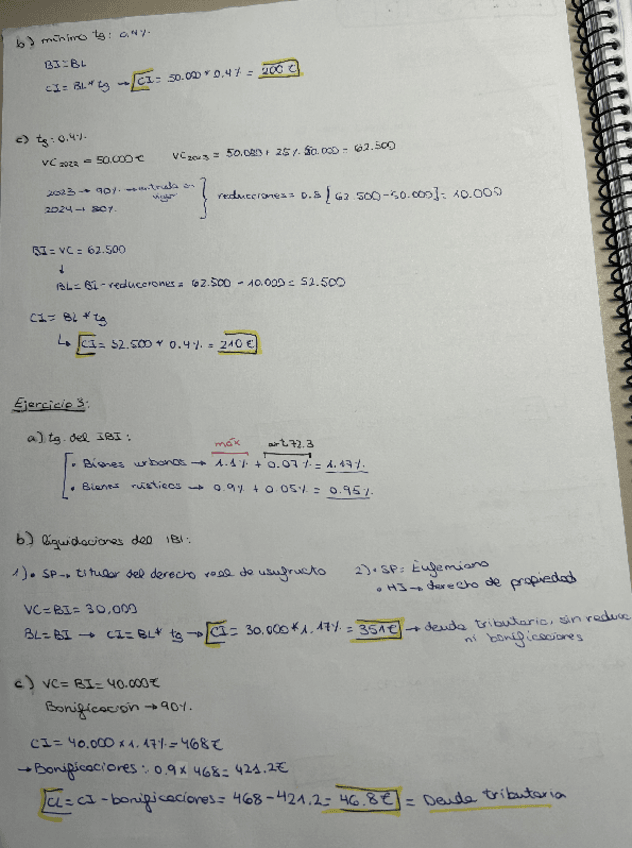 b) mínimo tg: 0.4%
BI=BL
CI= BL* tg → CI= 50.000 * 0.4% = 200 €
c) tg: 0.4%
VC2022 = 50.000€ VC2023 = 50.000+ 25% 50.000= 62.500
2023 → 90% → entrada en vigor
2024 → 80%
reducciones= 0.8 [62.500-50.000]= 10.000
BI= VC = 62.500
↓
BL= BI- reducciones= 62.500 - 10.000= 52.500
CI= BL * tg
↳ CI= 52.500 * 0.4% = 210 €
Ejercicio 3:
a) tg. del IBI:
máx art.72.3
• Bienes urbanos → 1.1% + 0.07% = 1.17%
• Bienes rústicos → 0.9% + 0.05% = 0.95%
b) liquidaciones del IBI:
1) • SP → titular del derecho real de usufructo 2) • SP= Eufemiano
• HI → derecho de propiedad
VC=BI= 30.000
BL= BI → CI= BL* tg → CI= 30.000*1.17%= 351€ → deuda tributaria, sin reducc
ni bonificaciones
c) VC= BI= 40.000€
Bonificación → 90%
CI= 40.000 x 1.17%= 468€
→ Bonificaciones: 0.9 x 468= 421.2€
CL= CI - bonificaciones= 468-421.2= 46.8€ = Deuda tributaria